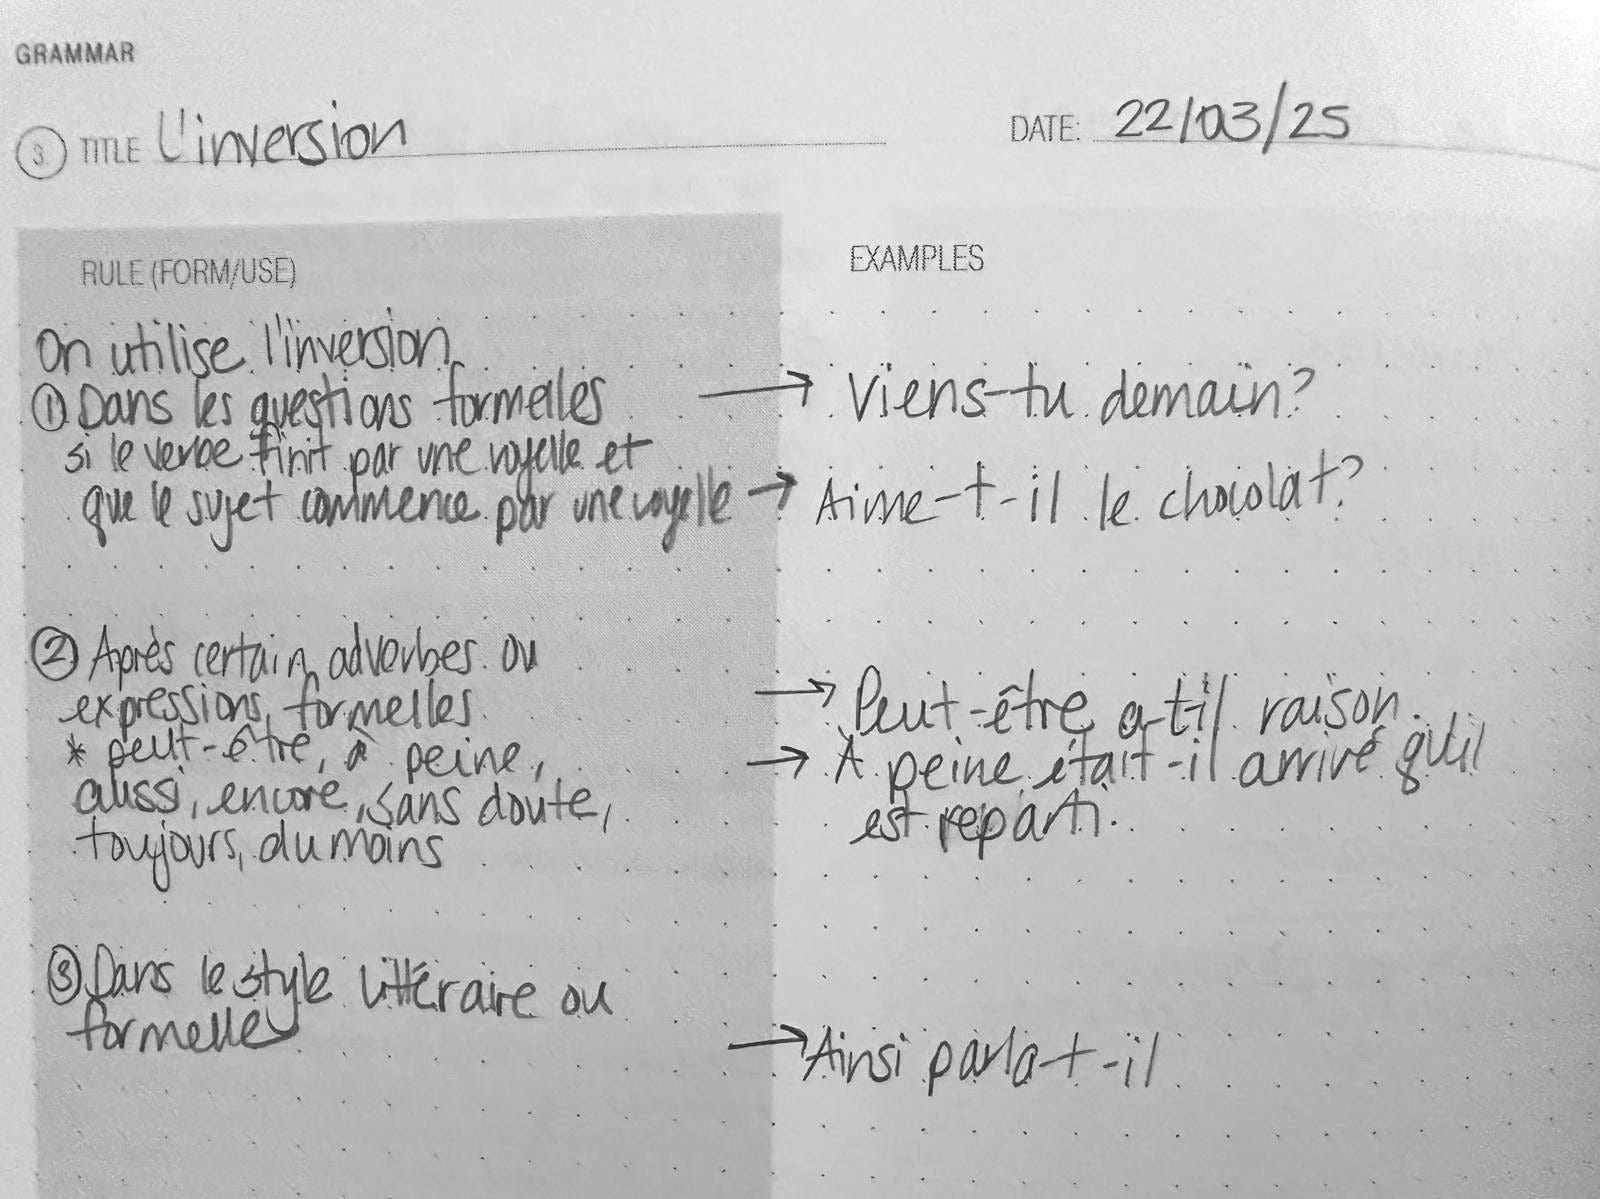 GRAMMAR
3. TITLE L'inversion
DATE: 22/03/25
RULE (FORM/USE)
On utilise l'inversion
① Dans les questions formelles
si le verbe finit par une voyelle et
que le sujet commence par une voyelle
② Après certain adverbes ou
expressions formelles
* peut-être, à peine,
aussi, encore, sans doute,
toujours, du moins
③ Dans le style littéraire ou
formelle
EXAMPLES
→ Viens-tu demain?
→ Aime-t-il le chocolat?
→ Peut-être a-t-il raison.
→ À peine était-il arrivé qu'il
est reparti.
→ Ainsi parla-t-il